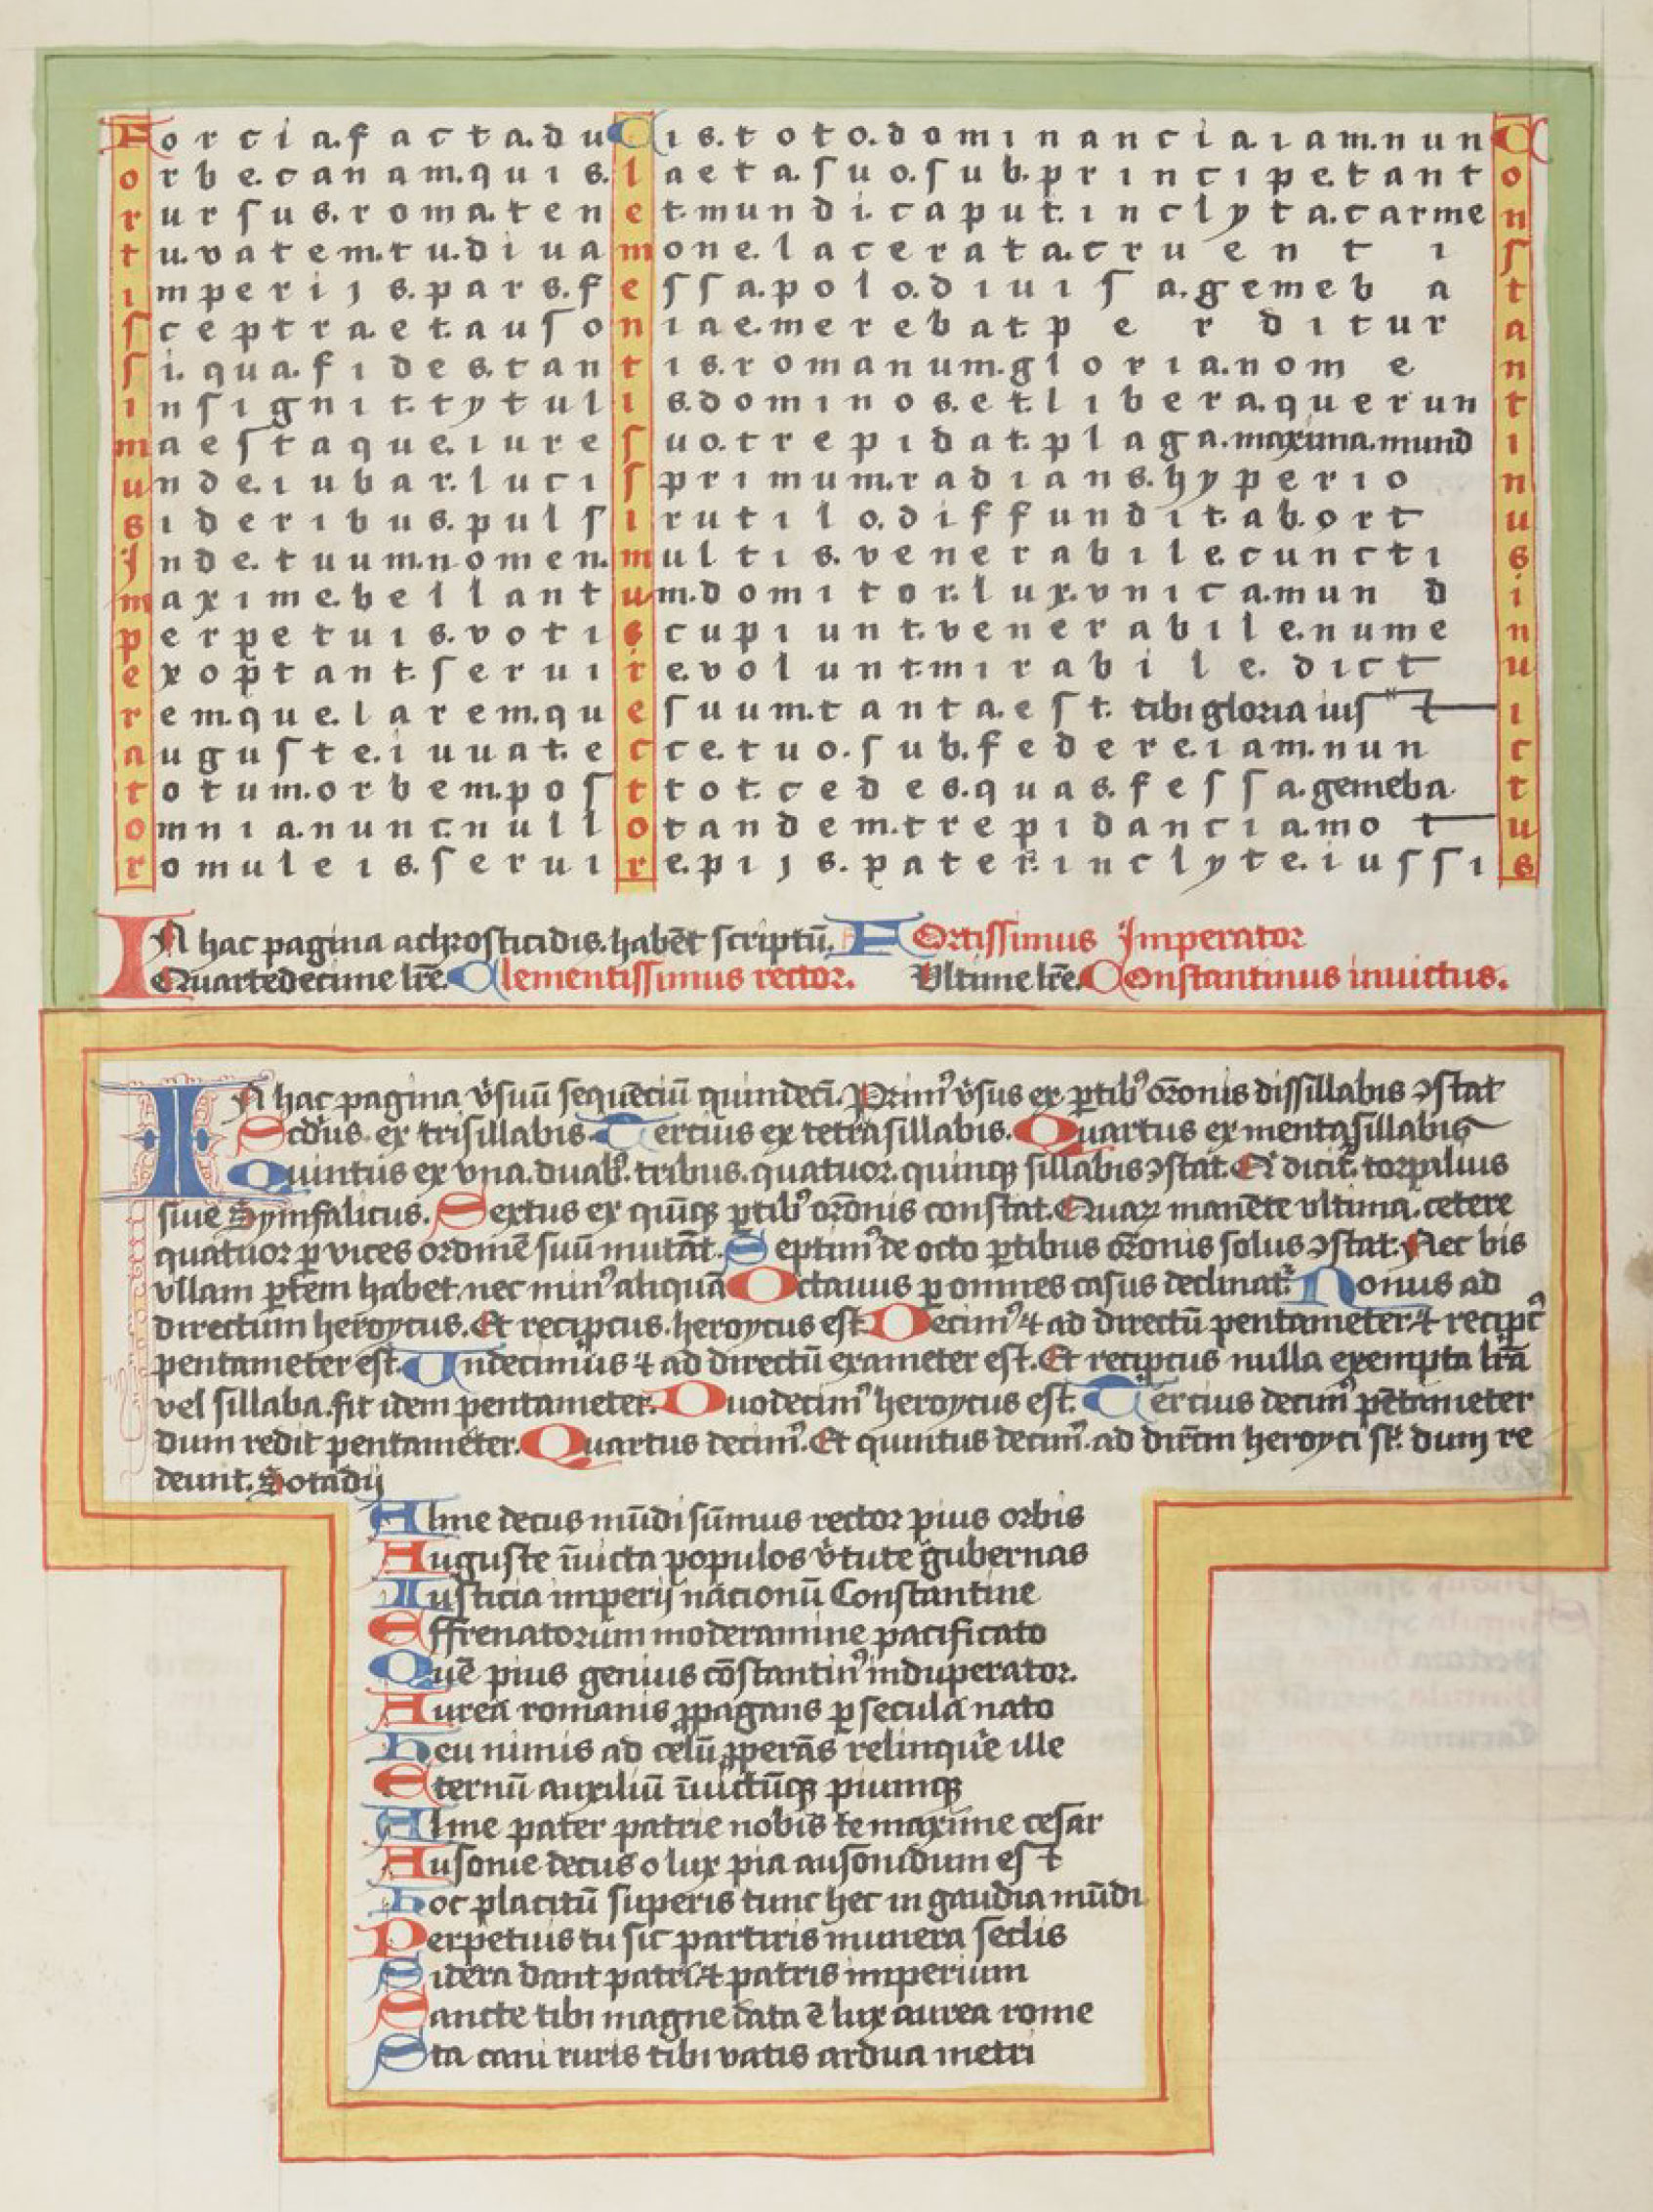 Forcia.facta.duCis.toto.dominancia.iam.nunC
orbe.canam.quis.laeta.suo.sub.principe.tanto
rursus.roma.tenet.mundi.caput.inclyta.carmen
tu.vatem.tu.diuamone.lacerata.cruentis
imperijs.pars.fessa.polo.diuisa.gemebat
sceptra.et.ausoniae.merebat.perditura
si.qua.fides.tantis.romanum.gloria.nomen
insignit.tytulis.dominos.et.libera.querunt
maestaque.iure.suo.trepidat.plaga.maxima.mundi
unde.iubar.lucis.primum.radians.hyperion
sideribus.pulsi.rutilo.diffundit.ab.ortu
Inde.tuum.nomen.multis.venerabile.cunctis
maxime.bellantum.domitor.lux.vnica.mundi
perpetuis.votis.cupiunt.venerabile.numen
exoptant.seruire.volunt.mirabile.dictu
rem.que.larem.que.suum.tanta.est.tibi gloria iusti
auguste.iuuat.ecce.tuo.sub.federe.iam.nunc
totum.orbem.post.tot.cedes.quas.fessa.gemebat
omnia.nunc.nullo.tandem.trepidancia.motu
romuleis.seruire.pijs.pater.inclyte.iussis
IN hac pagina achrosticidis.habēt scriptū. FOrtissimus Imperator
Quartedecime lr̄e. Clementissimus rector. Vltime lr̄e. Constantinus inuictus.
IN hac pagina v̓suū sequēciū quindecī. Prim᾿ v̓sus ex ꝑtib᾿ or̄onis dissillabis ↄstat
Scd̓us. ex trisillabis. Tercius ex tetrasillabis. Quartus ex mentasillabis
Quintus ex vna.duab᾿.tribus.quatuor.quinqꝫ sillabis ↄstat. Et dicit̓. torpalius
siue Symfalicus. Sextus ex quīqꝫ ꝑtib᾿ or̄onis constat. Quaꝝ manēte vltima.cetere
quatuor ꝑ vices ordinē suū mutāt. Septim᾿ de octo ꝑtibus or̄onis solus ↄstat. Nec bis
vllam ꝑtem habet.nec min᾿ aliquā Octauus ꝑ omnes casus declinat᷑. Nonus ad
directum heroycus. Et recip̄cus.heroycus est Decim᾿ ⁊ ad directū pentameter ⁊ recip̄c᾿
pentameter est. Undecimus ⁊ ad directū exameter est. Et recip̄cus nulla exempta lr̄a
vel sillaba.fit idem pentameter. Duodecim᾿ heroycus est. Tercius decim᾿ pētameter
dum redit pentameter. Quartus decim᾿. Et quintus decim᾿.ad dirc̄m heroyci sr̄. dum re
deunt. Sotadij
Alme decus mūdi sūmus rector pius orbis
Auguste īuicta populos v̓tute gubernas
Iusticia imperij nacionū Constantine
Effrenatorum moderamine pacificato
Quē pius genius cōstantin᾿ induperator.
Aurea romanis ꝓpagans ꝑ secula nato
Heu nimis ad celū ꝓperās relinque ille
Eternū auxiliū īuictūqꝫ piumqꝫ
Alme pater patrie nobis te maxime cesar
Ausonie decus o lux pia ausonidum est
Hoc placitū superis tunc hec in gaudia mūdi
Perpetuis tu sic partiris munera seclis
Sidera dant patri ⁊ patris imperium
Sancte tibi magne data ē lux aurea rome
Sta cani ruris tibi vatis ardua metri